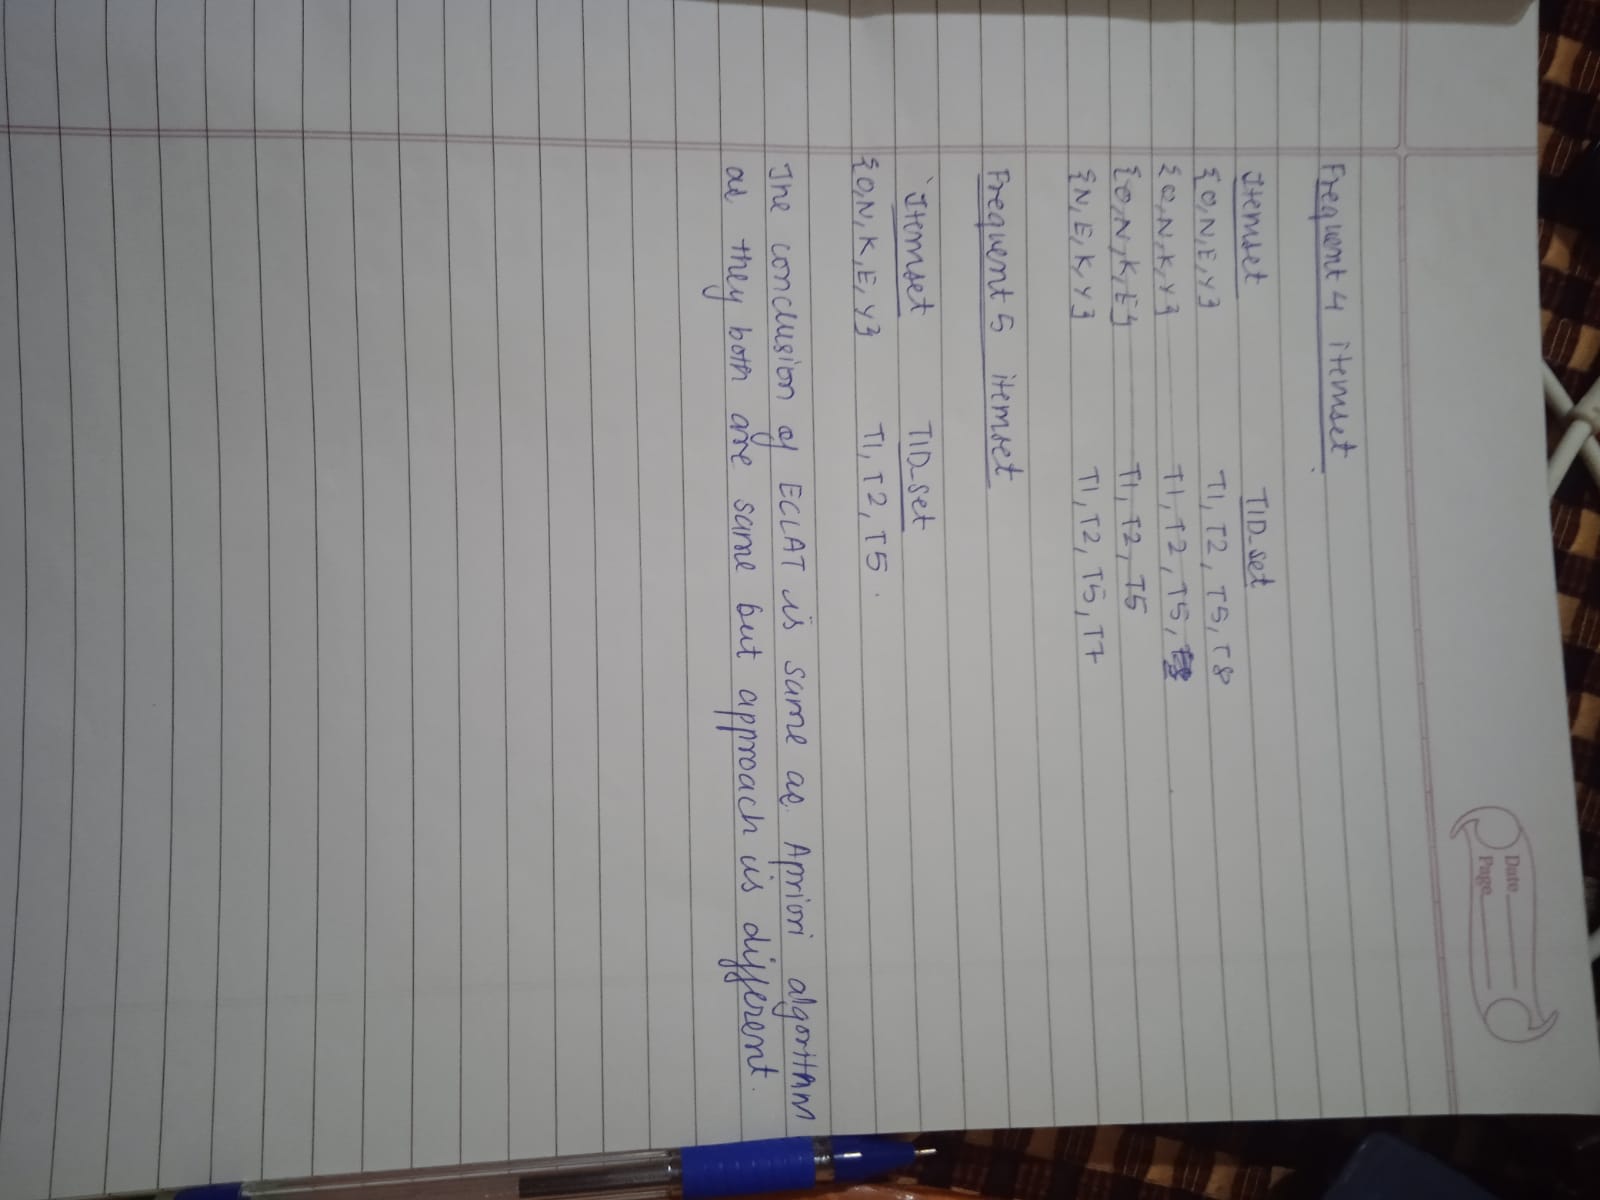 Date
Page
Frequent 4 itemset
Itemset TID_set
{O,N,E,Y} T1, T2, T5, T8
{O,N,K,Y} T1, T2, T5,
{O,N,K,E} T1, T2, T5
{N,E,K,Y} T1, T2, T5, T7
Frequent 5 itemset
Itemset TID_set
{O,N,K,E,Y} T1, T2, T5.
The conclusion of ECLAT is same as Apriori algorithm
as they both are same but approach is different.